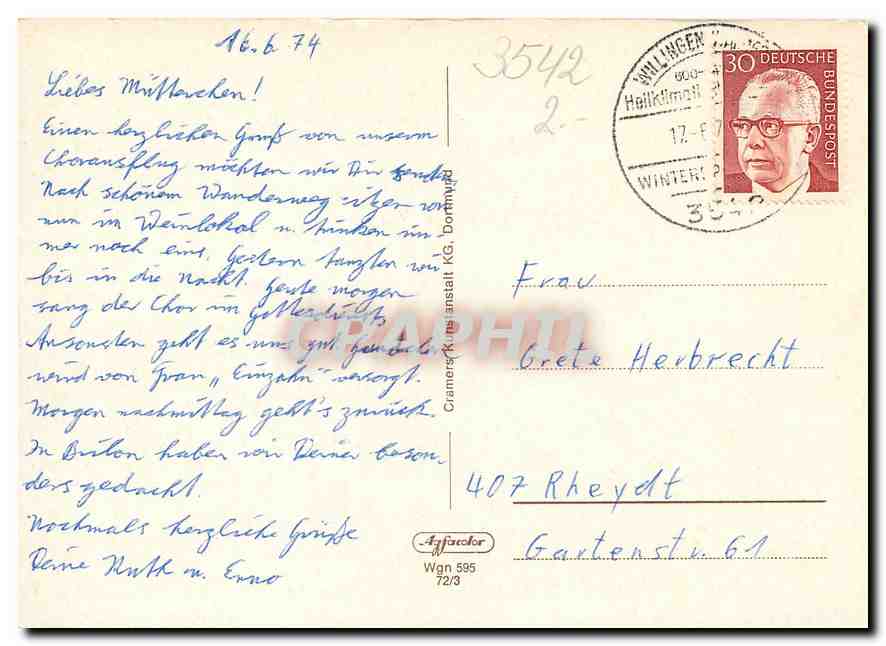 16.6.74
Liebes Mütterchen!
Einen herzlichen Gruß von unserm
Chorausflug möchten wir Dir senden
Nach schönem Wanderweg sitzen wir
nun im Weinlokal u. trinken im-
mer noch eins. Gestern tanzten wir
bis in die Nacht. Heute morgen
sang der Chor im Gottesdienst,
Ansonsten geht es uns gut
wird von Frau „Einzahn" versorgt.
Morgen nachmittag geht's zurück.
In Brilon haben wir Deiner beson-
ders gedacht.
Nochmals herzliche Grüße
Deine Ruth u. Erno
Cramers Kunstanstalt KG, Dortmund
Agfacolor
Wgn 595
72/3
3542
2.-
WILLINGEN
Heilklimat
17.-6.7
WINTERSP
3542
30 DEUTSCHE
BUNDESPOST
Frau
Grete Herbrecht
407 Rheydt
Gartenstr. 61
CRAPHIL